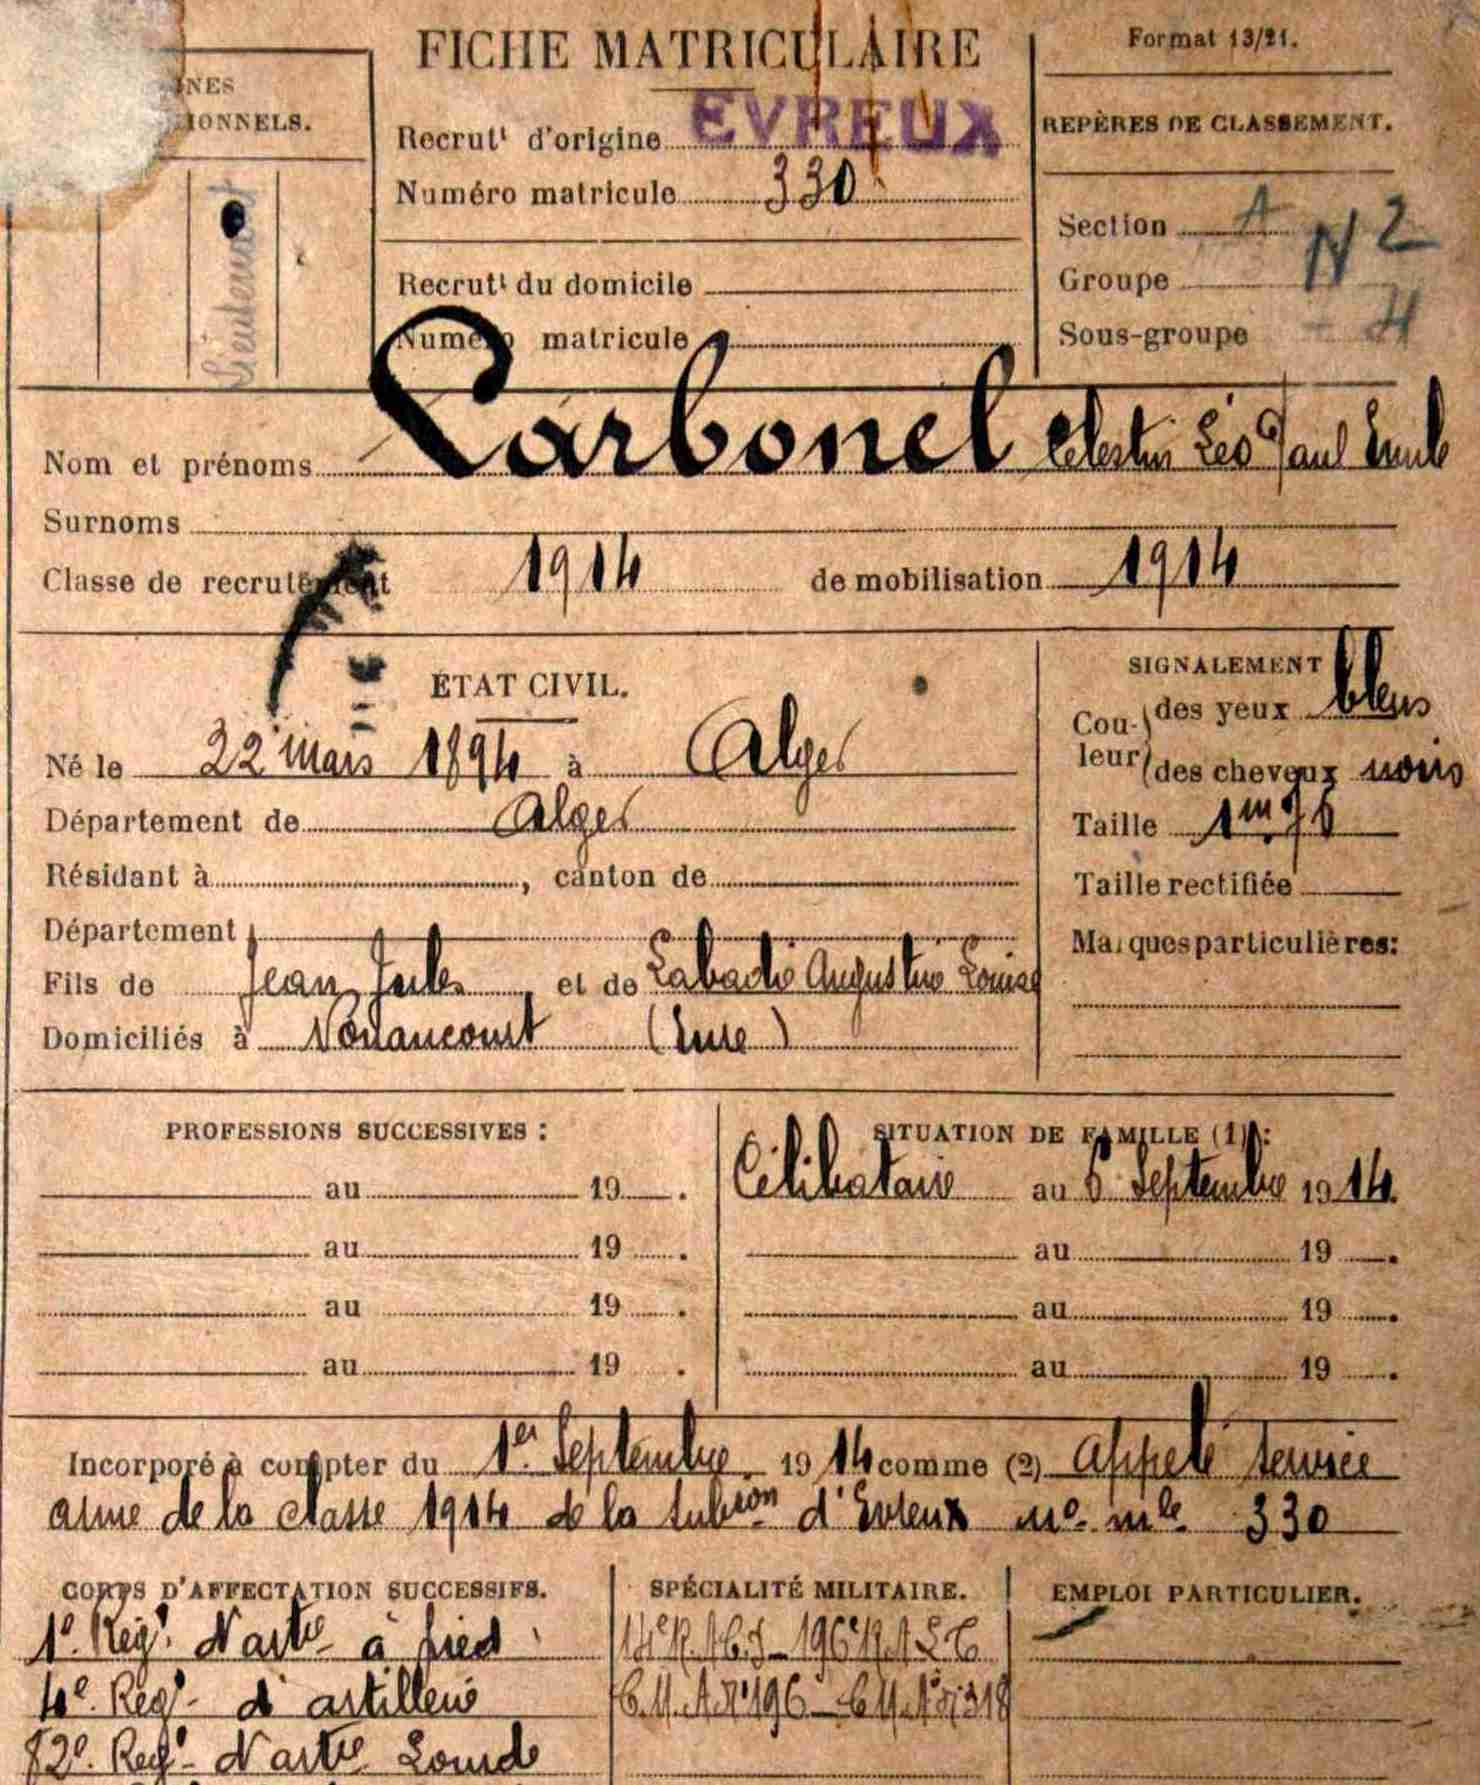 FICHE MATRICULAIRE
Format 13/21.
NES
IONNELS.
Recrutt d'origine EVREUX
REPÈRES DE CLASSEMENT.
Numéro matricule 330
Lieutenant
Section A
N 2
Recrutt du domicile
Groupe
Numéro matricule
Sous-groupe 4
Nom et prénoms Carbonel Célestin Léo Paul Emile
Surnoms
Classe de recrutement 1914 de mobilisation 1914
ÉTAT CIVIL.
SIGNALEMENT
Couleur des yeux bleus
des cheveux noirs
Né le 22 mars 1894 à Alger
Département de Alger
Taille 1m76
Résidant à , canton de
Taille rectifiée
Département
Marques particulières:
Fils de Jean Jules et de Labadie Augustine Louise
Domiciliés à Nonancourt (Eure)
PROFESSIONS SUCCESSIVES :
SITUATION DE FAMILLE (1) :
au 19 .
Célibataire au 6 Septembre 1914.
au 19 .
au 19 .
au 19 .
au 19 .
au 19 .
au 19 .
Incorporé à compter du 1er Septembre 1914 comme (2) Appelé service
armé de la classe 1914 de la subson d'Evreux no mle 330
CORPS D'AFFECTATION SUCCESSIFS.
SPÉCIALITÉ MILITAIRE.
EMPLOI PARTICULIER.
1e Regt d'artie à pied
196e R.A.L.
4e Regt d'artillerie
C.M.A. n°196 C.M.A. n°318
82e Regt d'artie Lourde